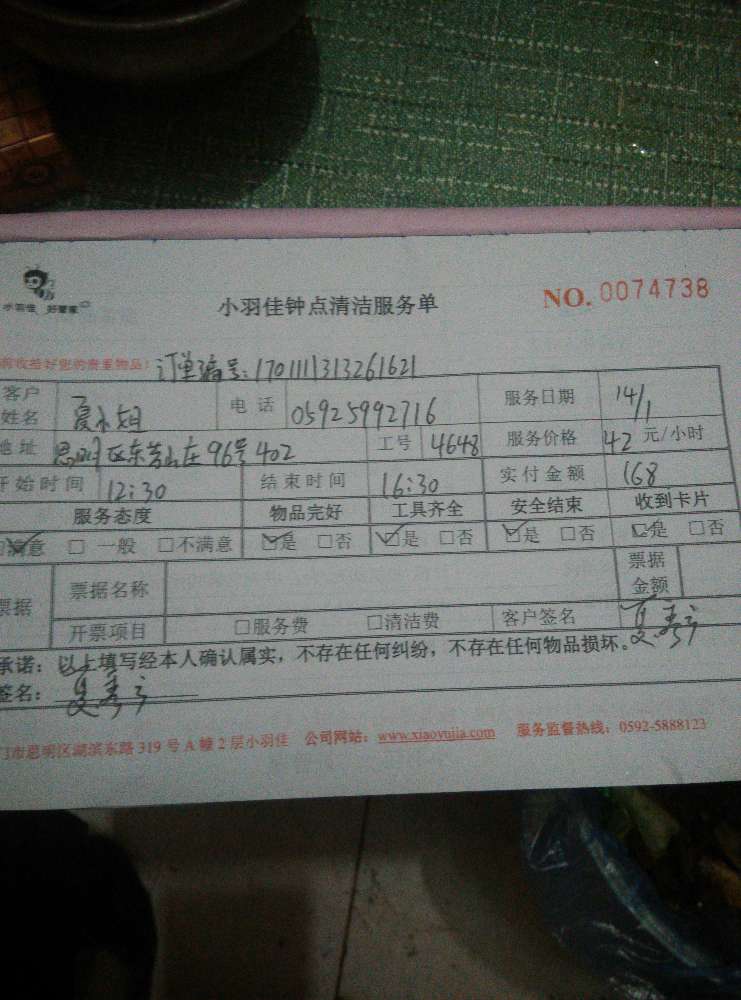 小羽佳 好管家
小羽佳钟点清洁服务单
NO. 0074738
收拾好您的贵重物品! 订单编号:1701111313261621
客户姓名 夏小姐 电话 05925992716 服务日期 14/1
地址 思明区东芳山庄96号402 工号 4648 服务价格 42 元/小时
开始时间 12:30 结束时间 16:30 实付金额 168
服务态度 物品完好 工具齐全 安全结束 收到卡片
☑满意 □一般 □不满意 ☑是 □否 ☑是 □否 ☑是 □否 ☑是 □否
票据 票据名称 票据金额
开票项目 □服务费 □清洁费 客户签名 夏
承诺:以上填写经本人确认属实,不存在任何纠纷,不存在任何物品损坏。
签名: 夏
门市思明区湖滨东路 319 号 A 幢 2 层小羽佳 公司网站:www.xiaoyujia.com 服务监督热线:0592-5888123